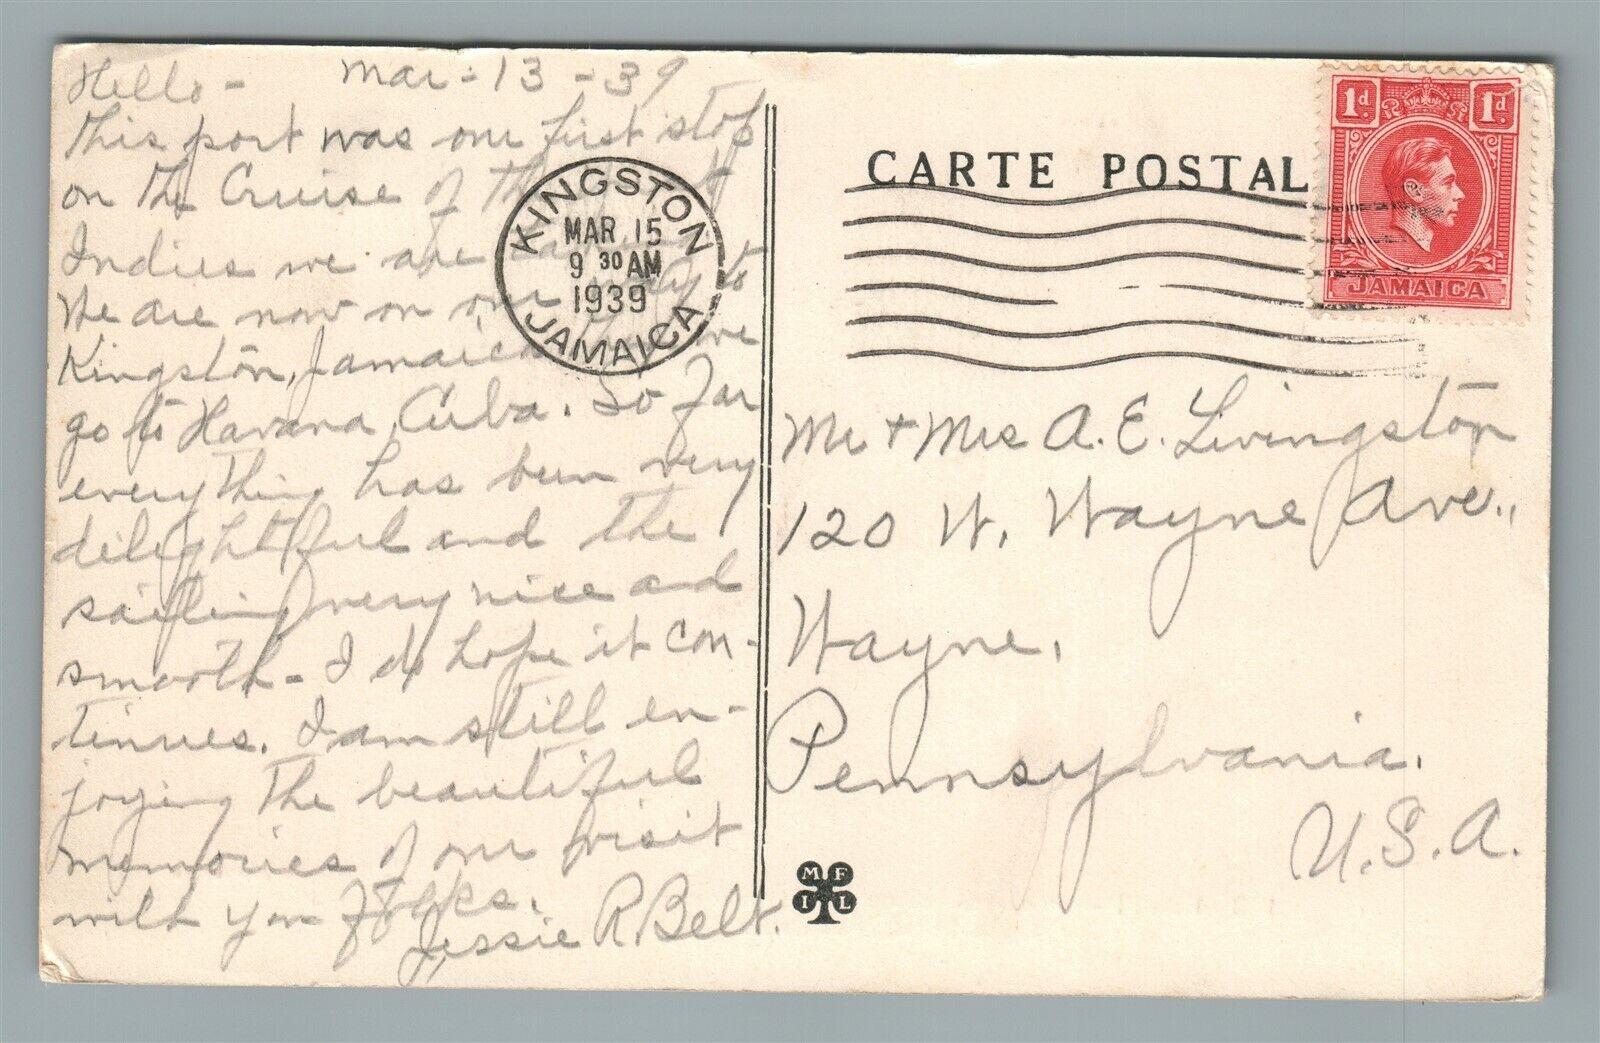 Hello - Mar - 13 - 39
This port was our first stop
on the Cruise of the
Indies we are
We are now on our way to
Kingston, Jamaica we
go to Havana, Cuba. So far
everything has been very
delightful and the
sailing very nice and
smooth - I do hope it con-
tinues. I am still en-
joying the beautiful
memories of our visit
with you folks.
Jessie R. Belt.
KINGSTON
MAR 15
9 30 AM
1939
JAMAICA
CARTE POSTAL
1d 1d
JAMAICA
Mr + Mrs A. E. Livingston
120 W. Wayne Ave.,
Wayne,
Pennsylvania.
U.S.A.
M F
I L